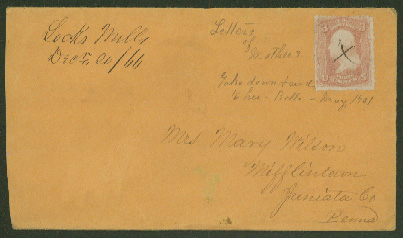 Locks Mills
Dec 20/66
Letters
of
Mother
Take down and
to her - Belle - May 1901
3 3
Mrs Mary Wilson
Mifflintown
Juniata Co
Penna